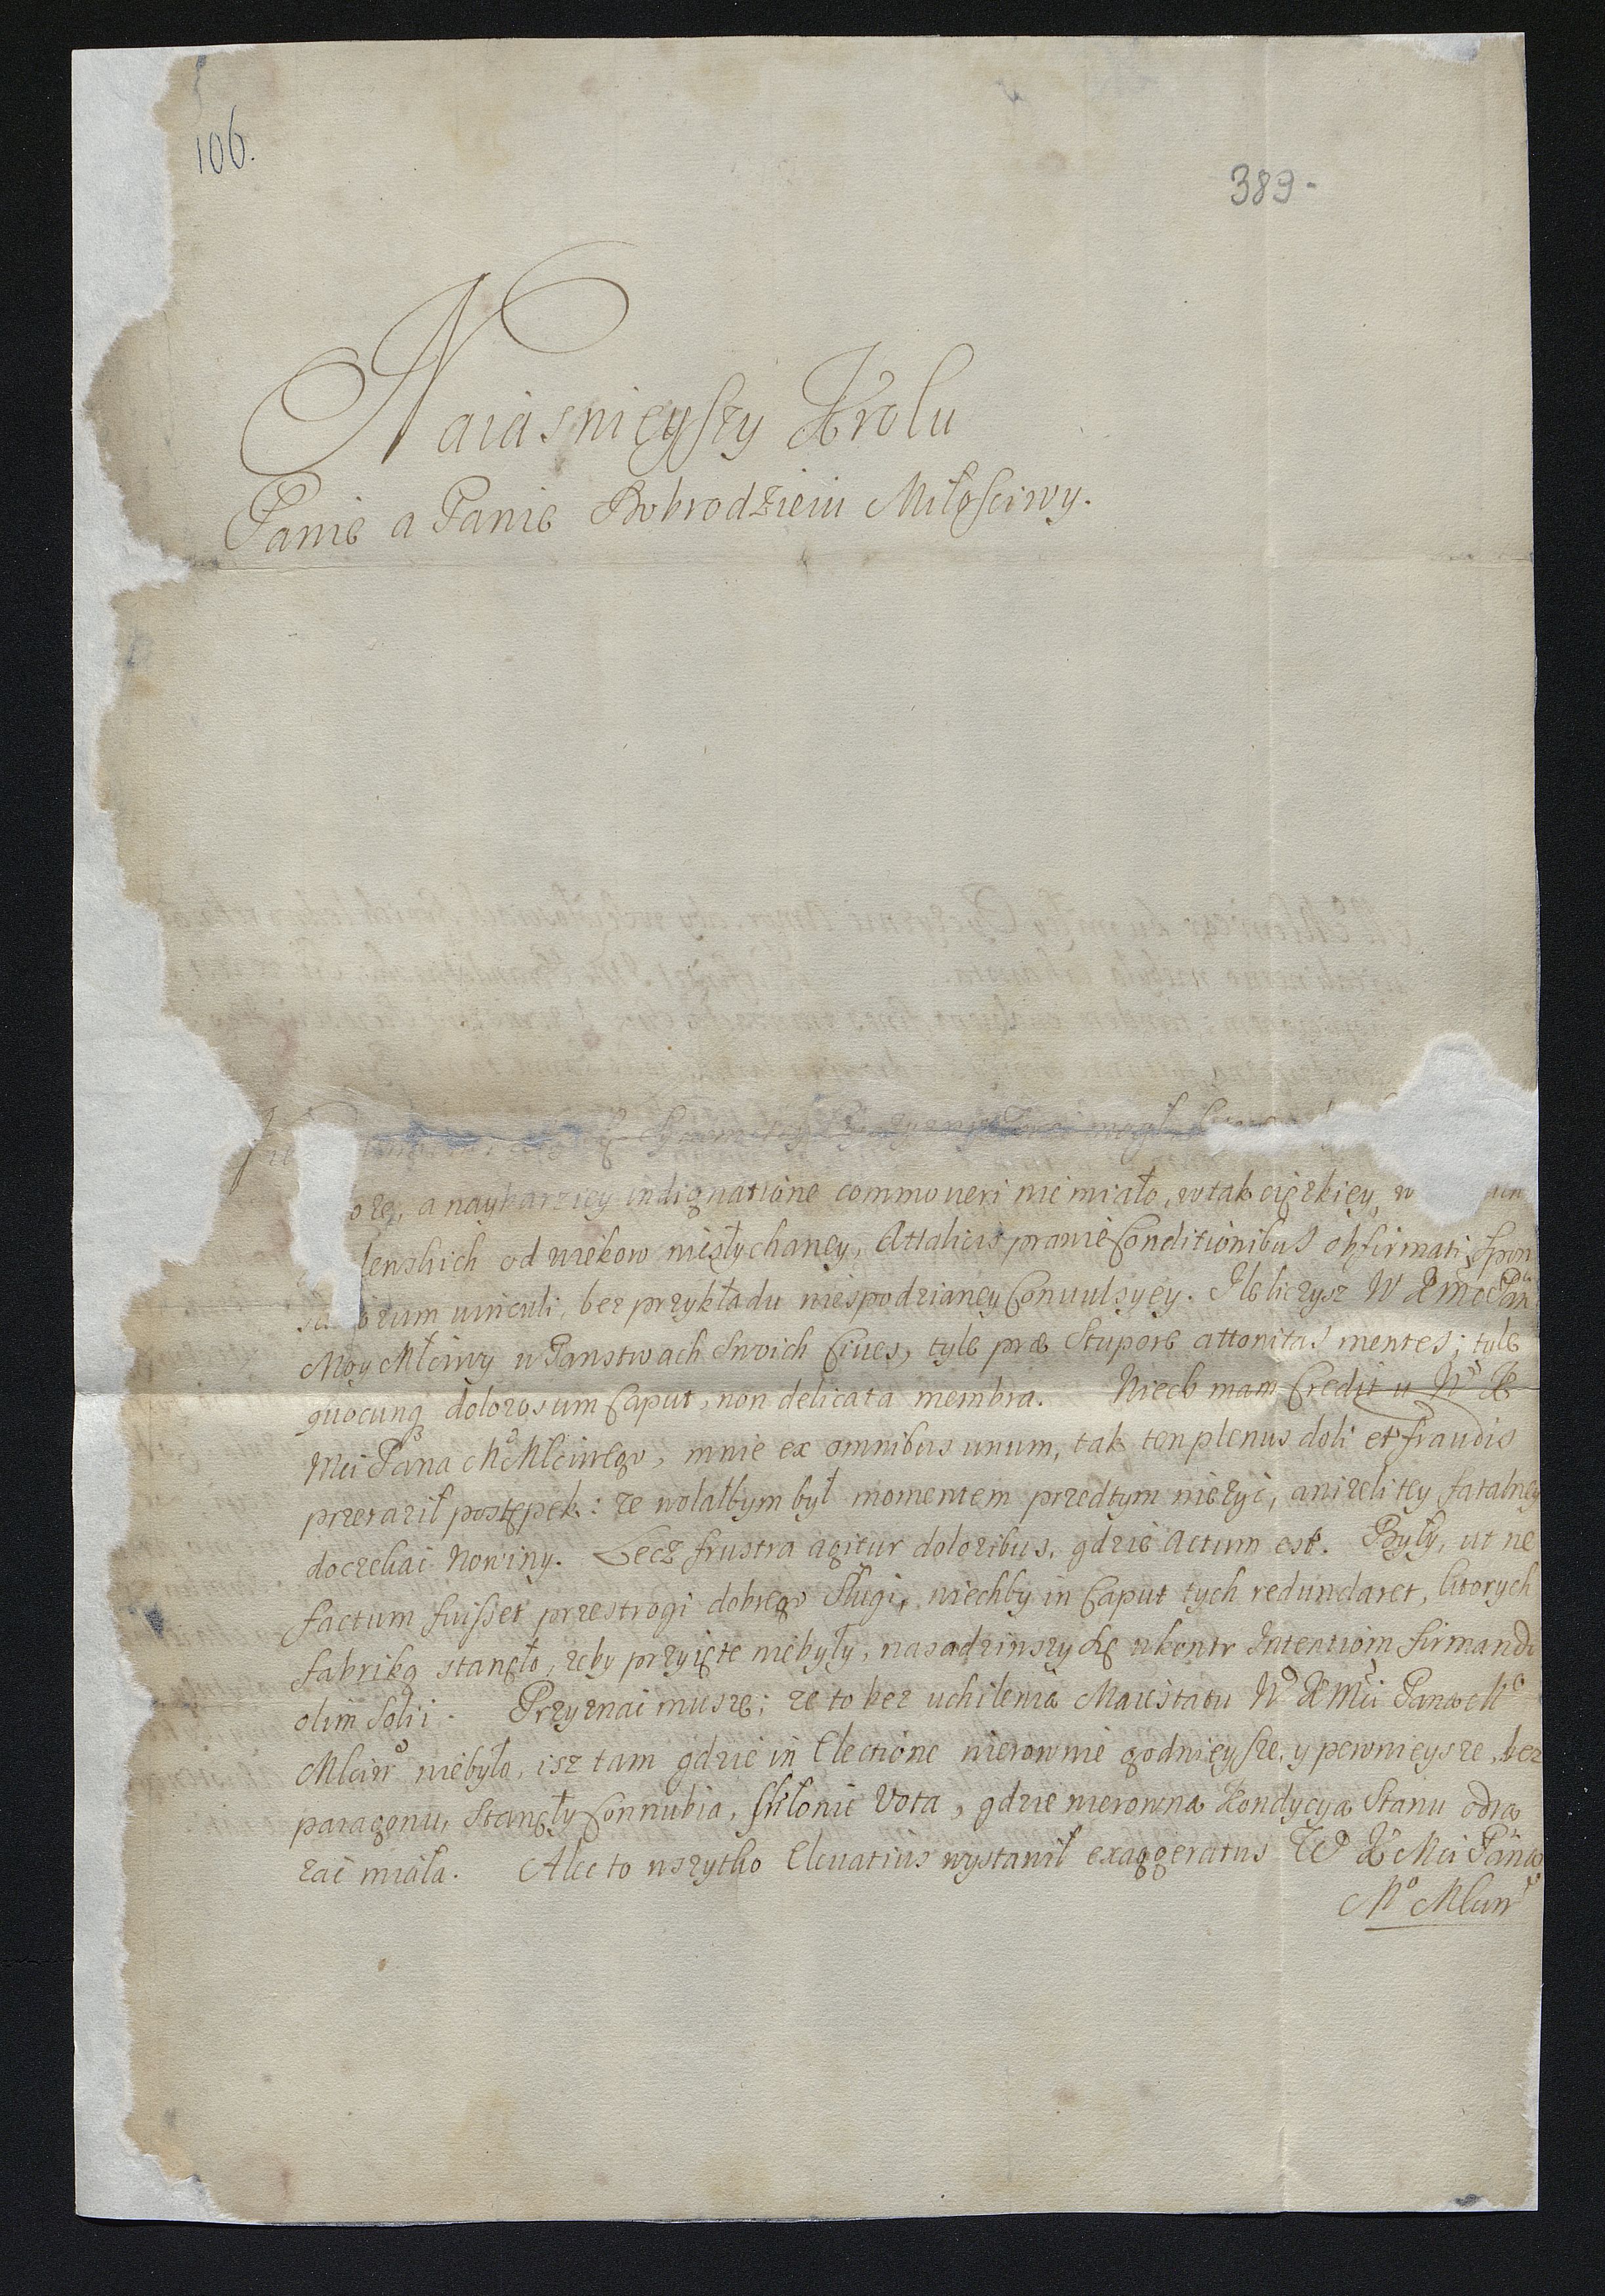 106.
389-
Naiasnięyszy Krolu
Panie a Panie Dobrodzieiu Miłosciwy.
a naybarziey indignatione commoueri nie miało, w tak cięzkięy, w
lenskich od wiekow niesłychaney, Attalicis prawie Conditionibus obfirmati, Spon
orum uinculi, bez przykładu niespodzianey Conuulsyey. Ile liczysz W K Mc Pan
Moy Młciwy w Panstwach Swoich Ciues, tyle præ Stupore attonitas mentes; tyle
quocunq dolorosum Caput, non delicata membra. Niech mam Credit u Wo K
Mci Pana Mo Młciwego, mnie ex omnibus unum, tak ten plenus doli et fraudis
przeraził postępek: ze wolałbym był momentem przedtym nieżyć, anizeli tey fatalney
doczekać Nowiny. Lecz frustra agitur doloribus, gdzie actum est. Były, ut ne
factum fuisset przestrogi dobrego Sługi, niechby in Caput tych redundaret, ktorych
fabriką stanęło, zeby przyięte niebyły, nasadziwszy Się
olim Solii. Przyznać muszę; ze to bez uchilenia Maiestatu Wo K Mci Pana Mo
Młciwo niebyło, isz tam gdzie in Electione nierownie godnieysze, y pewnieysze, bez
paragonu, Stanęły Connubia, Skłonić Vota, gdzie nierowna Kondycya Stanu odra
zać miała. Alec to wszytko Eleuatius wystawił exaggeratus Wo K Mci Pana
Mo Młciwo